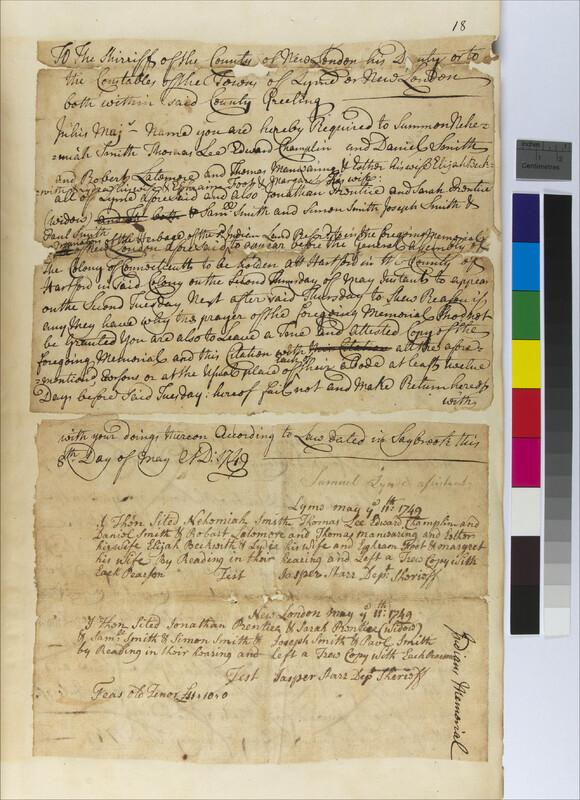 18
To The Shirriff of the County of New London his D uty or to
the Constables of the Towns of Lyme or New London
both within said County Greeting
In his Majs Name you are hereby Required to Summon Nehe=
=miah Smith Thomas Lee Edward Champlin and Daniel Smith
and Robert Latomore and Thomas Manwaring & Esther his wife Elijah Beck=
=with & Lydea his wife & Ephraim Foot & Margaret his wife:
all of Lyme aforesaid and also Jonathan Prentice and Sarah Prentice
(widow) Saml Smith and Simon Smith Joseph Smith &
Paul Smith
of the Herbage of the Indian Land Refered to in the foregoing Memorial
of New London aforesaid to appear before the General Assembly of
the Colony of Connecticutt to be holden att Hartford in the County of
Hartford in said Colony on the Second Thursday of May Instant to appear
on the Second Tuesday Next after said Thursday to Shew Reason if
any they have why the prayer of the foregoing Memorial Should not
be Granted You are also to Leave a True and attested Copy of the
foregoing Memorial and this Citation with Each of the afore=
=mentiond persons or at the Usual place of their abode at least twelve
Days before said Tuesday: hereof fail not and Make Return hereof
with
with your doings thereon According to Law dated in Saybrook this
8th Day of May AD: 1749
Samuel Lynde assistant
Lyme may ye 11th: 1749
I Thon Sited Nehemiah Smith Thomas Lee Edward Champlin and
Daniel Smith & Robert Latomore and Thomas manwaring and Esther
his wife Elijah Beckwith & Lydia his wife and Ephream Foot & margret
his wife By Reading in their hearing and Left a Trew Copy with
Each Pearson
Test Jasper Starr Dept Sherioff
New London may ye 11th: 1749
I Thon Sited Jonathan Prentice & Sarah Prentice (Widow)
& Saml Smith & Simon Smith & Joseph Smith & Paul Smith
by Reading in their hearing and Left a Trew Copy with Each Pearson
Test Jasper Starr Dep Sherioff
Feas old Tenor £11=10=0
Indians Memorial
inches
Centimetres